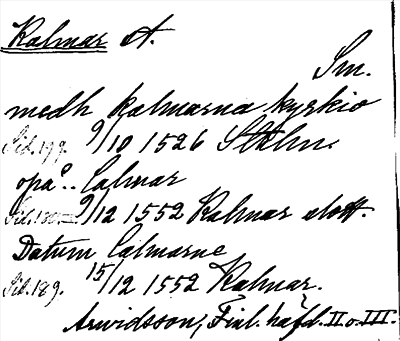 Kalmar st.
Sm.
medh kalmarna kyrkio
Sid. 179. 9/10 1526 Sthlm.
opå .. Calmar
9/12 1552 Kalmar slott.
Datum Calmarne
Sid. 189. 15/12 1552 Kalmar.
Arwidsson, Finl. häfd. II o. III.